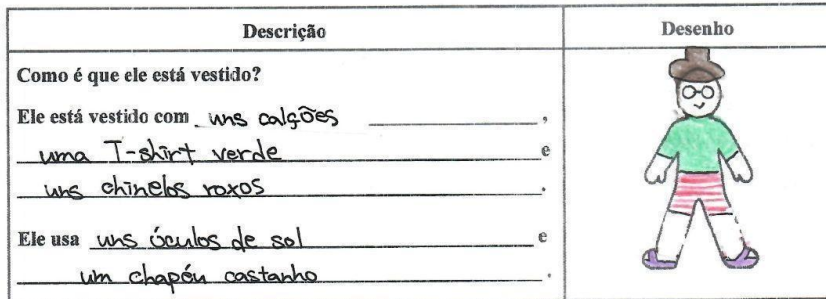 Descrição
Desenho
Como é que ele está vestido?
Ele está vestido com uns calções ,
uma T-shirt verde e
uns chinelos roxos .
Ele usa uns óculos de sol e
um chapéu castanho .